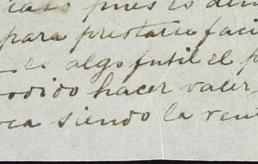 caso pues es de
para prestarle faci
es algo futil el
odido hacer valer
ca siendo la ren